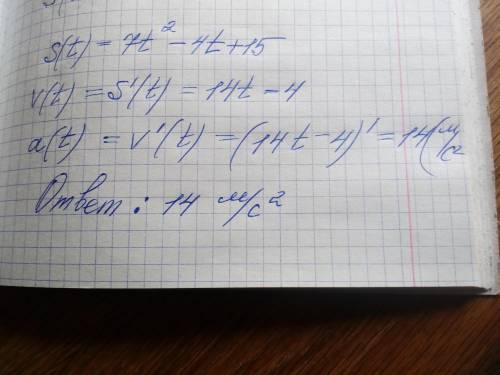 s(t) = 7t² - 4t + 15
v(t) = S'(t) = 14t - 4
a(t) = v'(t) = (14t - 4)' = 14(м/с²
Ответ: 14 м/с²